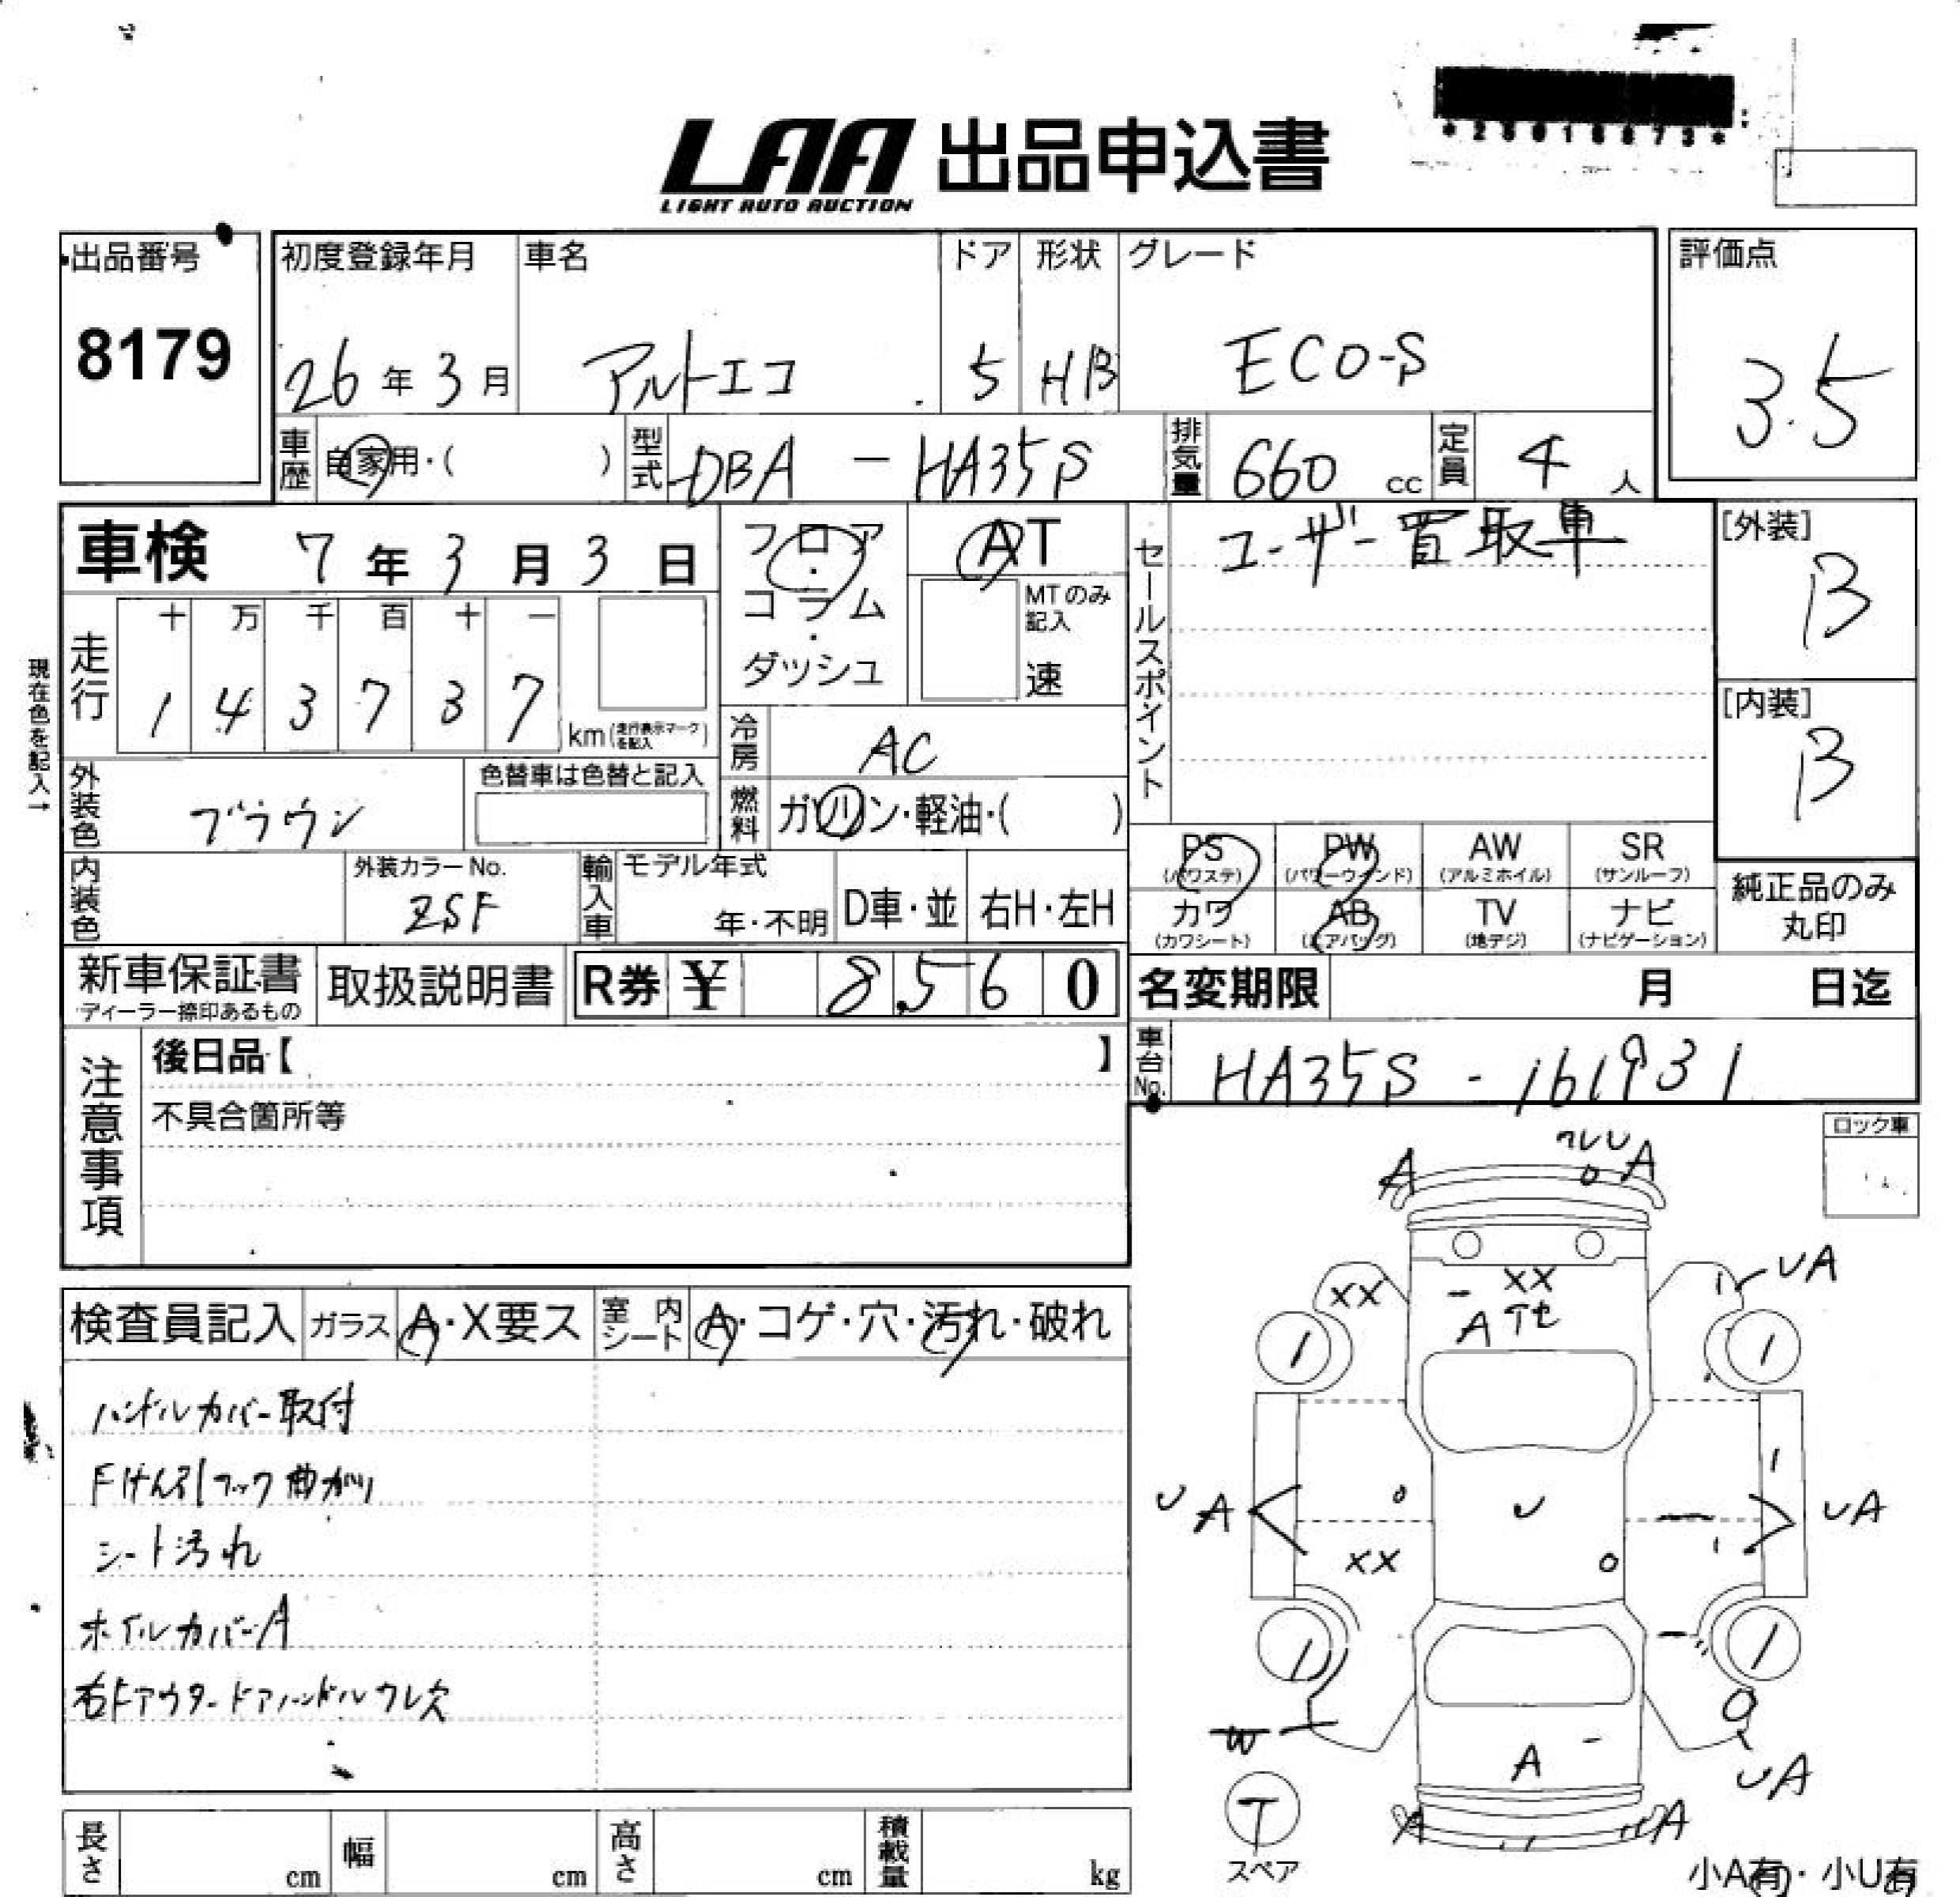 LAA 出品申込書
LIGHT AUTO AUCTION
出品番号
8179
初度登録年月
26年3月
車名
アルトエコ
ドア
5
形状
HB
グレード
ECO-S
評価点
3.5
車歴 自家用・( )
型式 DBA-HA35S
排気量 660 cc
定員 4人
車検 7年3月3日
フロア・コラム・ダッシュ
AT
MTのみ記入
速
セールスポイント
ユーザー買取車
[外装]
B
[内装]
B
現在色を記入→
走行
十 万 千 百 十 一
1 4 3 7 3 7
km(走行表示マークを記入)
冷房 AC
燃料 ガソリン・軽油・( )
外装色 ブラウン
色替車は色替と記入
内装色
外装カラーNo.
ZSF
輸入車
モデル年式
年・不明
D車・並
右H・左H
PS (パワステ)
PW (パワーウインド)
AW (アルミホイル)
SR (サンルーフ)
カワ (カワシート)
AB (エアバッグ)
TV (地デジ)
ナビ (ナビゲーション)
純正品のみ
丸印
新車保証書
ディーラー捺印あるもの
取扱説明書
R券 ¥ 8,560
名変期限 月 日迄
車台No. HA35S-161931
注意事項
後日品【 】
不具合箇所等
ロック車
検査員記入
ガラス A・X要ス
室内シート A・コゲ・穴・汚れ・破れ
ハンドルカバー取付
Fけん引フック曲がり
シート汚れ
ホイルカバーA
右Fアウタードアハンドルワレ欠
A
ワレUA
XX
XX
UA
A
UA
UA
U
XX
W
UA
A
A
A
T
スペア
小A有・小U有
長さ cm
幅 cm
高さ cm
積載量 kg